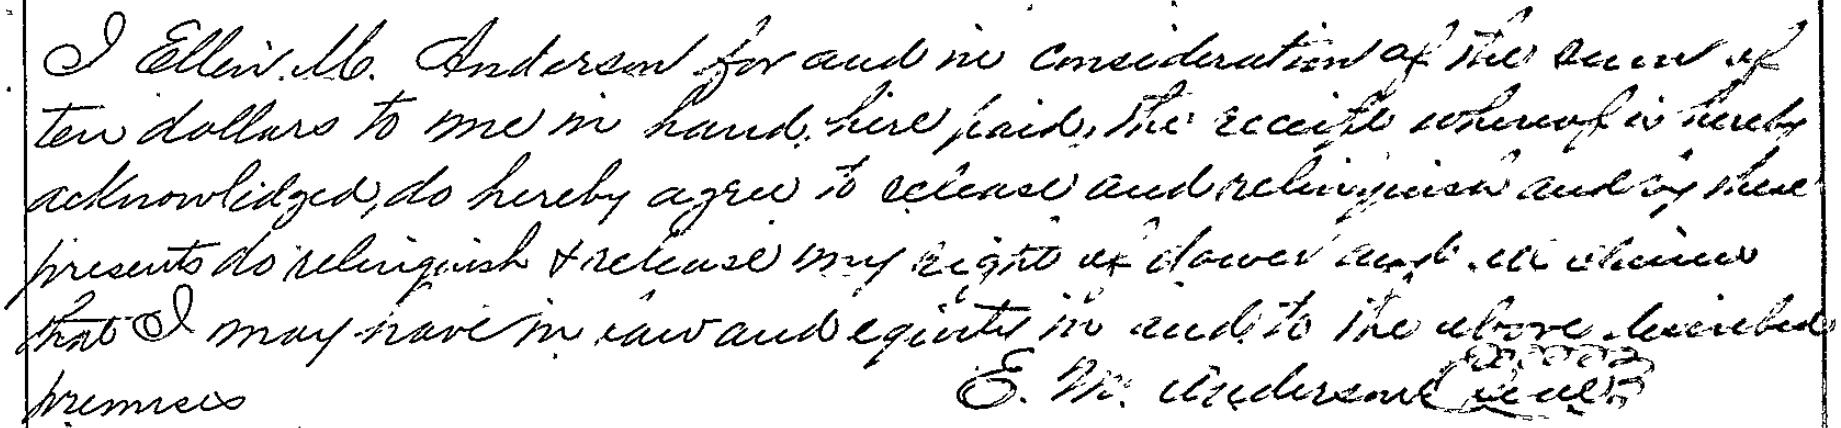 I Ellen. M. Anderson for and in consideration of the sum of
ten dollars to me in hand, here paid, the receipt whereof is hereby
acknowledged, do hereby agree to release and relinquish and by these
presents do relinquish & release my right of dower and all claims
that I may have in law and equity in and to the above described
premises
E. M. Anderson Seal